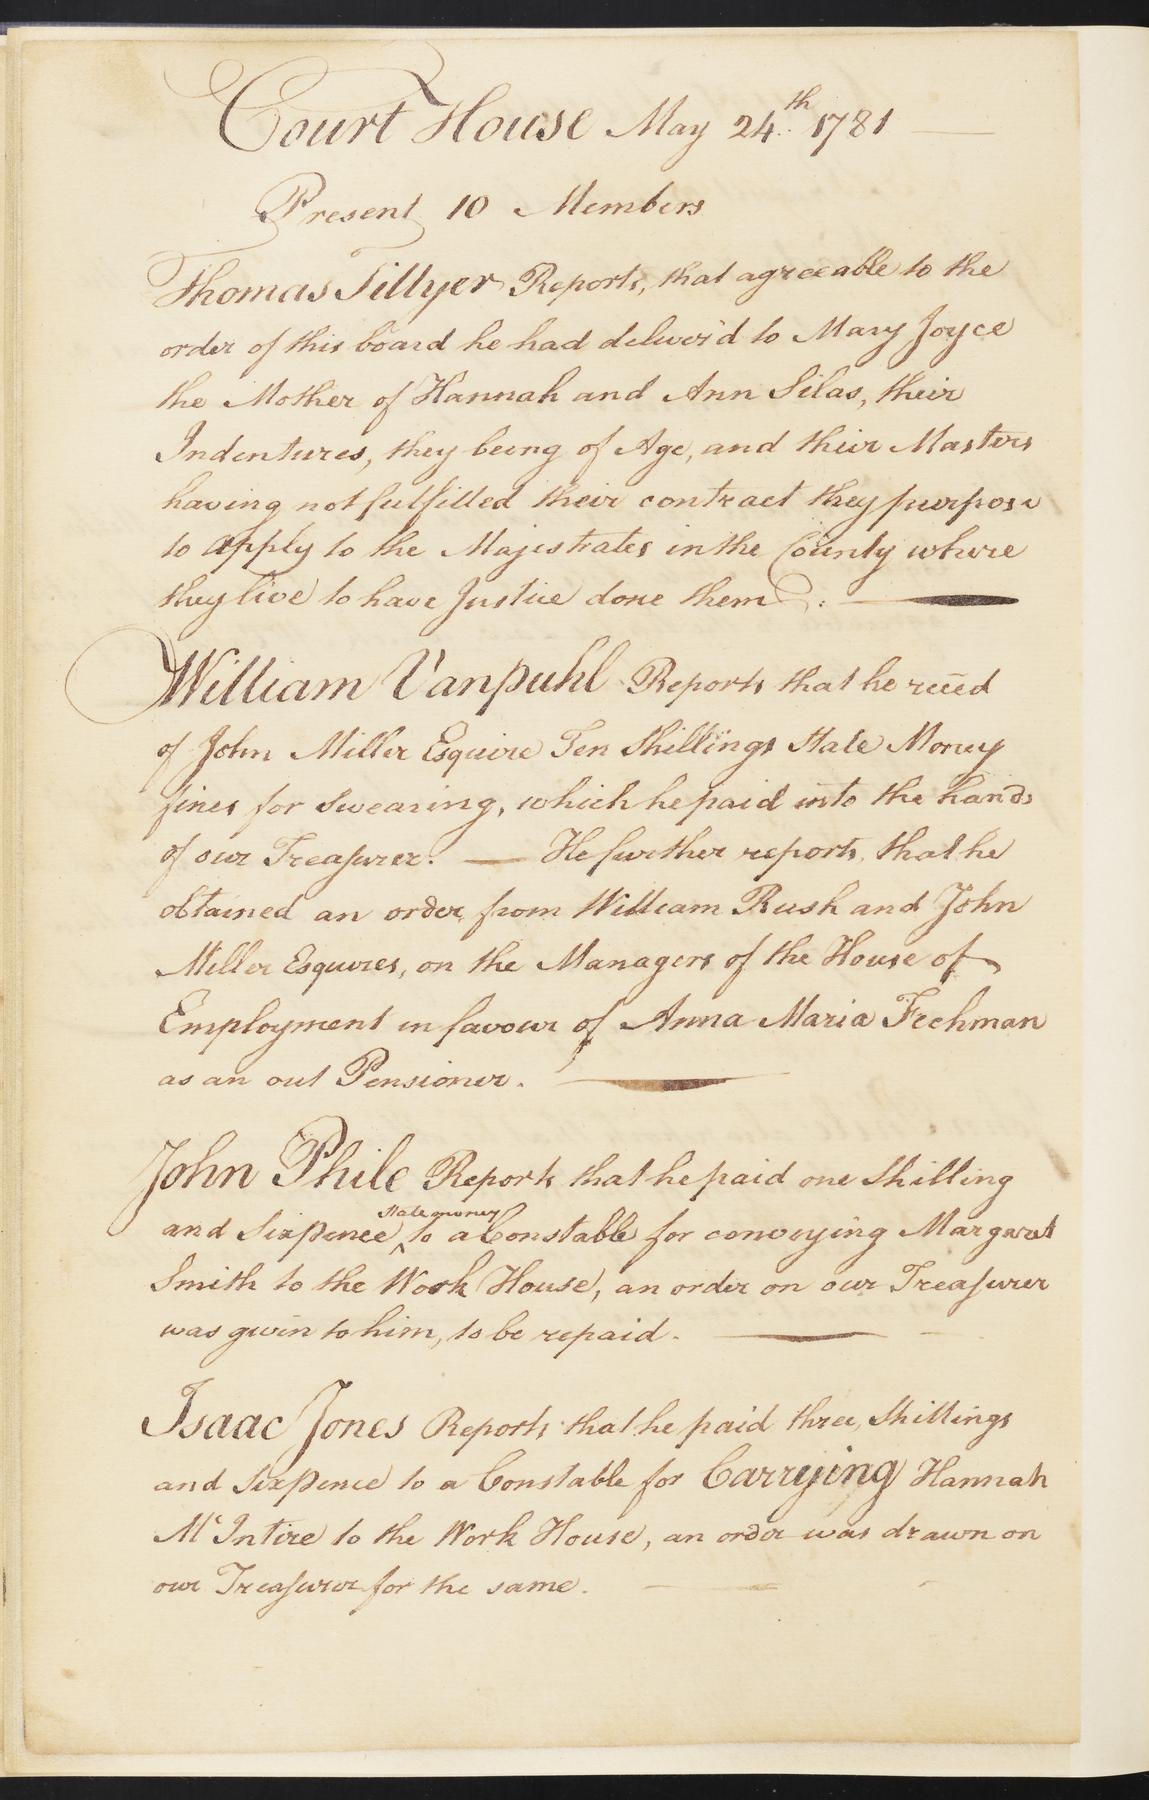 Court House May 24th 1781
Present 10 Members
Thomas Tillyer Reports, that agreeable to the
order of this board he had deliver'd to Mary Joyce
the Mother of Hannah and Ann Silas, their
Indentures, they being of Age, and their Masters
having not fulfilled their contract they purpose
to apply to the Majistrates in the County where
they live to have Justice done them.
William Vanpuhl Reports that he recēed
of John Miller Esquire Ten Shillings State Money
fines for swearing, which he paid into the hands
of our Treaſurer. — He further reports, that he
obtained an order from William Rush and John
Miller Esquires, on the Managers of the House of
Employment in favour of Anna Maria Fechman
as an out Pensioner.
John Phile Reports that he paid one Shilling
State money
and Sixpence ^ to a Constable for conveying Margaret
Smith to the Work House, an order on our Treaſurer
was given to him, to be repaid.
Isaac Jones Reports that he paid three, Shillings
and Sixpence to a Constable for Carrying Hannah
Mc Intire to the Work House, an order was drawn on
our Treaſurer for the same.